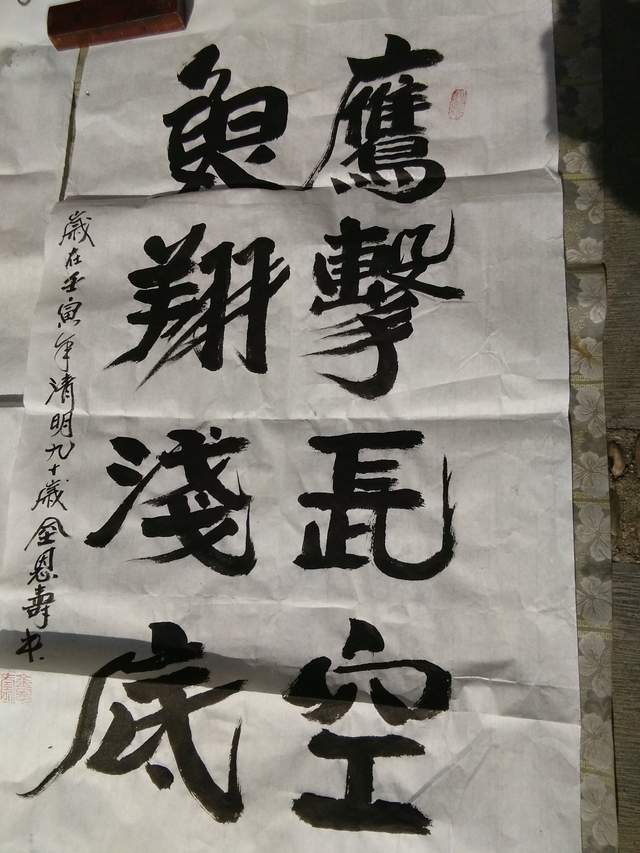 鷹擊長空
魚翔淺底
歲在壬寅年清明九十歲金恩壽书